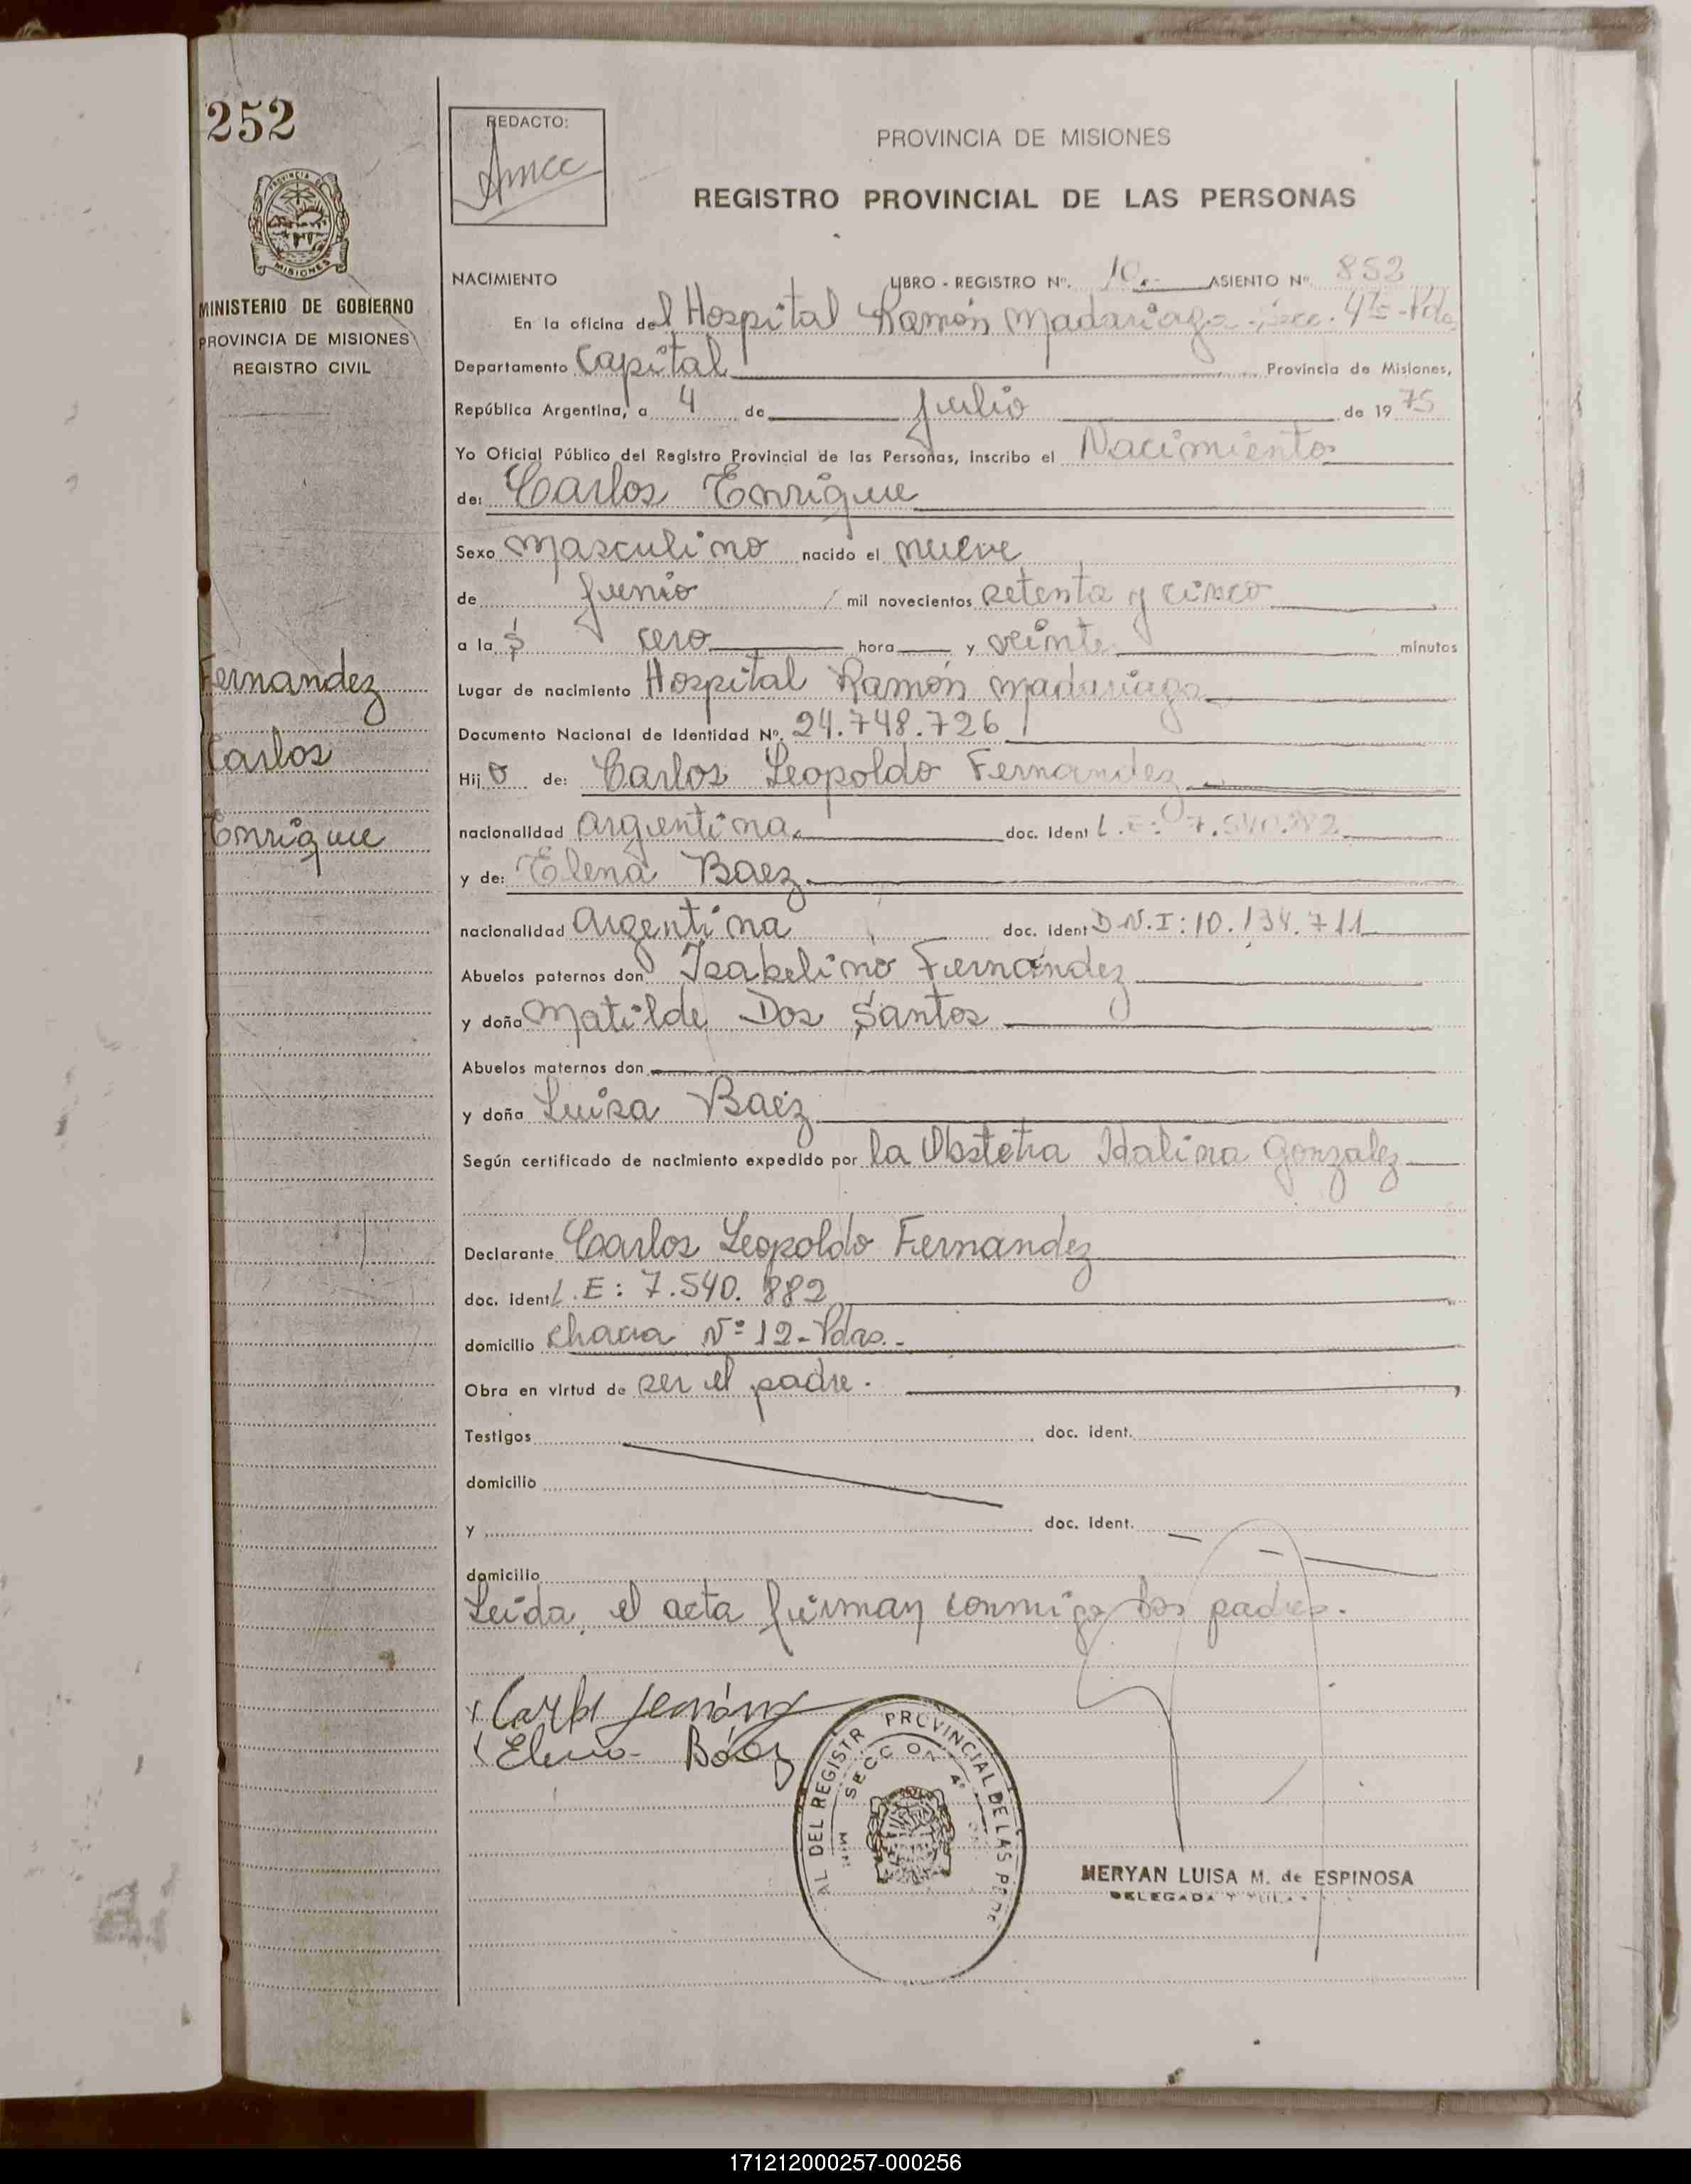 252
MINISTERIO DE GOBIERNO
PROVINCIA DE MISIONES
REGISTRO CIVIL
Fernandez
Carlos
Enrique
REDACTO:
PROVINCIA DE MISIONES
REGISTRO PROVINCIAL DE LAS PERSONAS
NACIMIENTO LIBRO - REGISTRO Nº. 10.- ASIENTO Nº. 852
En la oficina del Hospital Ramón Madariaga - Secc. 4ta -
Departamento Capital Provincia de Misiones,
República Argentina, a 4 de Julio de 1975
Yo Oficial Público del Registro Provincial de las Personas, inscribo el Nacimiento
de: Carlos Enrique
Sexo masculino nacido el nueve
de Junio mil novecientos setenta y cinco
a la s cero hora y veinte minutos
Lugar de nacimiento Hospital Ramón Madariaga
Documento Nacional de Identidad Nº. 24.748.726
Hijo de: Carlos Leopoldo Fernandez
nacionalidad argentina. doc. ident L.E: 7.540.882
y de: Elena Baez
nacionalidad argentina doc. ident D.N.I: 10.134.711
Abuelos paternos don Isabelino Fernández
y doña Matilde Dos Santos
Abuelos maternos don
y doña Luisa Baez
Según certificado de nacimiento expedido por la Obstetra Idalina Gonzalez
Declarante Carlos Leopoldo Fernandez
doc. ident L.E: 7.540.882
domicilio chacra Nº 12 - Pdas.-
Obra en virtud de ser el padre.
Testigos doc. ident.
domicilio
y doc. ident.
domicilio
Leida el acta firman conmigo los padres.
Elena Báez
REGISTR PROVINCIAL DE LAS
SECC 4ª
MERYAN LUISA M. de ESPINOSA
DELEGADA
171212000257-000256